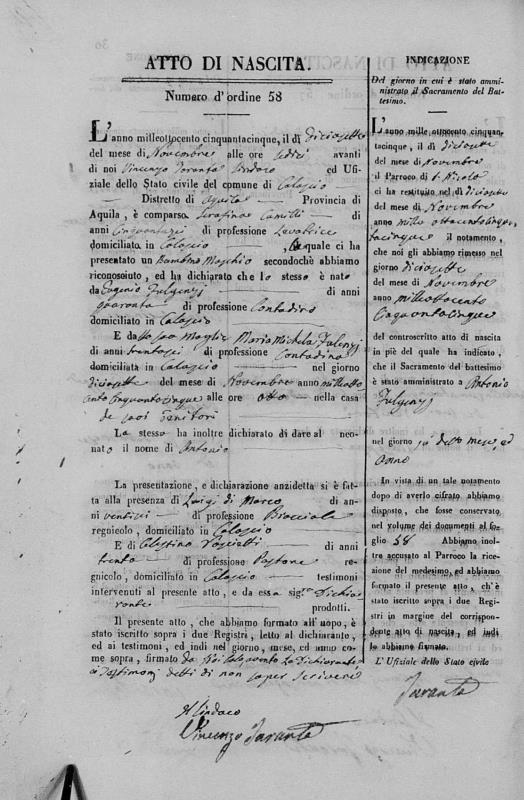 ATTO DI NASCITA.
Numero d'ordine 58
L'anno milleottocento cinquantacinque, il dì diciasette
del mese di Novembre alle ore sedici avanti
di noi Vincenzo Taranta Sindaco ed Ufi-
ziale dello Stato civile del comune di Calascio
Distretto di Aquila Provincia di
Aquila, è comparsa Serafina Camilli di
anni di professione Levatrice
domiciliata in Calascio , la quale ci ha
presentato un Bambino Maschio secondochè abbiamo
riconosciuto, ed ha dichiarato che lo stesso è nato
da Eugenio Fulgenzj di anni
quaranta di professione Contadino
domiciliato in Calascio
E da sua Moglie Maria Michela Fulgenzj
di anni trentasei di professione Contadina
domiciliata in Calascio nel giorno
diciasette del mese di Novembre anno milleotto
cento cinquantacinque alle ore otto nella casa
de suoi Genitori
La stessa ha inoltre dichiarato di dare al neo-
nato il nome di Antonio
La presentazione, e dichiarazione anzidetta si è fat-
ta alla presenza di Luigi di Marco di an-
ni ventisei di professione Bracciale
regnicolo, domiciliato in Calascio
E di Celestino di anni
trenta di professione Pastore re-
gnicolo, domiciliato in Calascio testimoni
intervenuti al presente atto, e da essa sig.ra Dichia
rante prodotti.
Il presente atto, che abbiamo formato all'uopo, è
stato iscritto sopra i due Registri, letto al dichiarante,
ed ai testimoni, ed indi nel giorno, mese, ed anno co-
me sopra, firmato da Noi la Dichiarante
e Testimonj detti di non saper scrivere
Il Sindaco
Vincenzo Taranta
INDICAZIONE
Del giorno in cui è stato ammi-
nistrato il Sacramento del Bat-
tesimo.
L'anno mille ottocento cinquan-
tacinque, il dì diciasette
del mese di Novembre
il Parroco di S. Nicola
ci ha restituito nel dì diciasette
del mese di Novembre
anno mille ottocentocinquan
tacinque il notamento,
che noi gli abbiamo rimesso nel
giorno diciasette
del mese di Novembre
anno milleottocento
cinquantacinque
del controscritto atto di nascita
in piè del quale ha indicato,
che il Sacramento del battesimo
è stato amministrato a Antonio
Fulgenzj
nel giorno detto mese, ed
anno
In vista di un tale notamento
dopo di averlo cifrato abbiamo
disposto, che fosse conservato
nel volume dei documenti al fo-
glio 58 Abbiamo inol-
tre accusato al Parroco la rice-
zione del medesimo, ed abbiamo
formato il presente atto, ch'è
stato iscritto sopra i due Regi-
stri in margine del corrispon-
dente atto di nascita, ed indi
lo abbiamo firmato.
L'Ufiziale dello Stato civile
Taranta